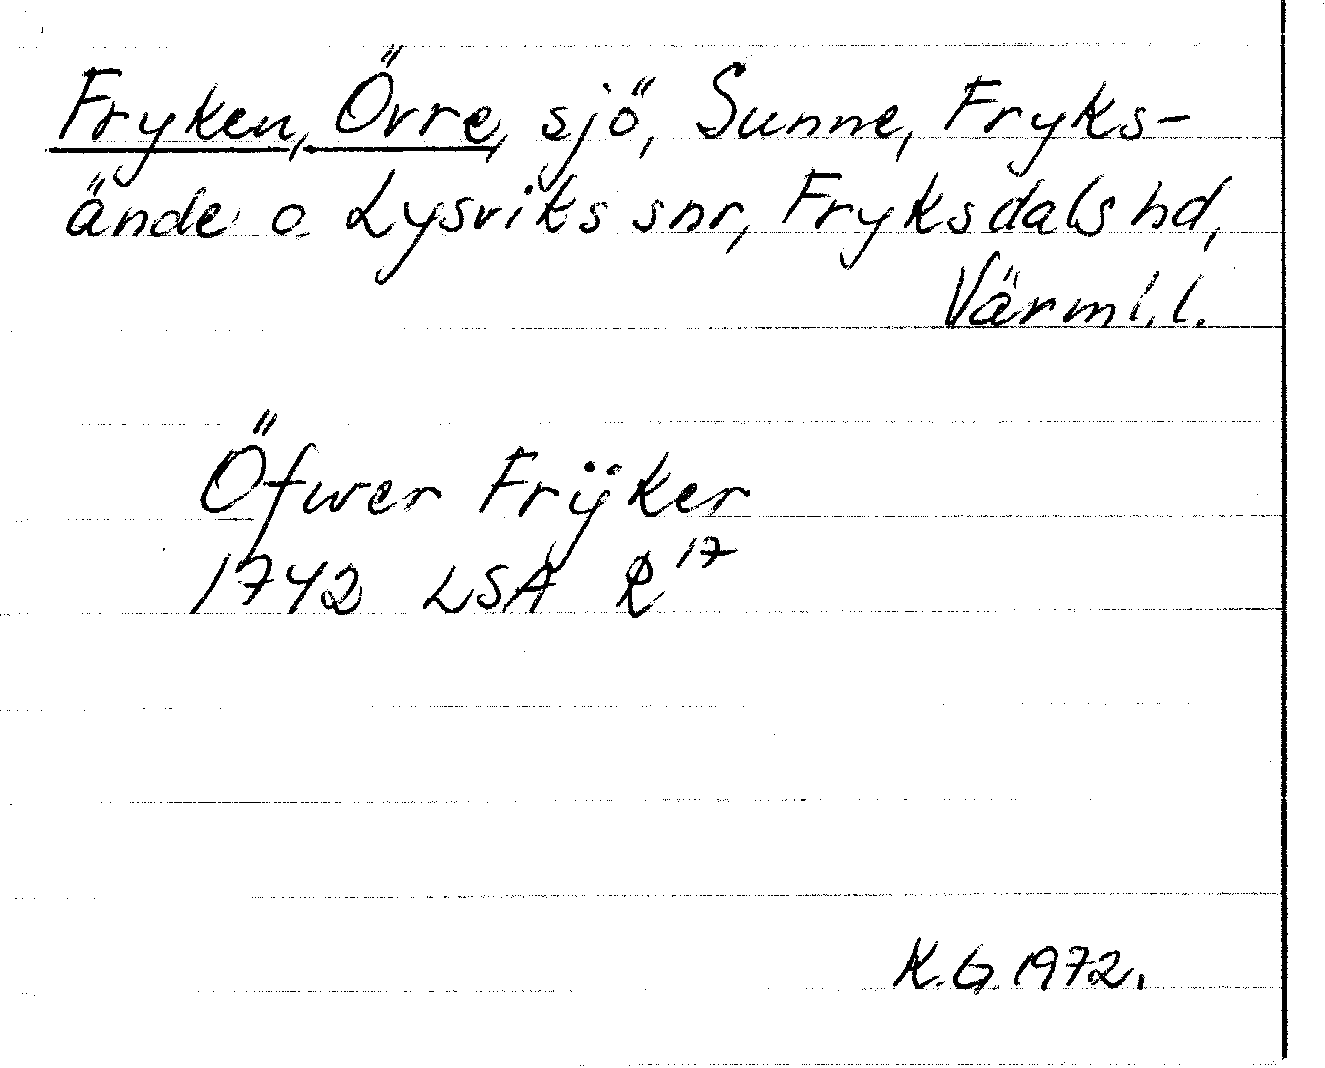 Fryken, Övre, sjö, Sunne, Fryks-
ände o. Lysviks snr, Fryksdals hd,
Värml. l.
Öfwer Frÿker
1742 LSA R¹⁷
K.G. 1972.